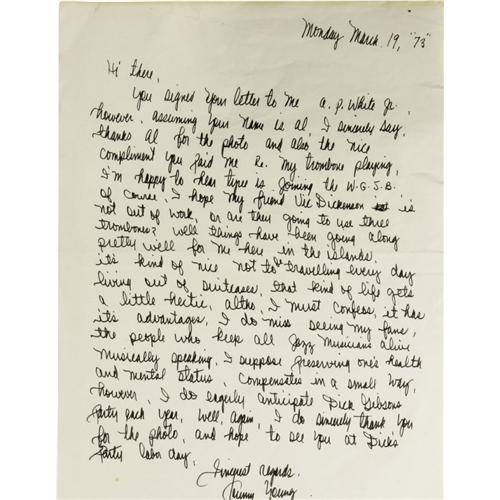 Monday March. 19, "73"
Hi there,
You signed your letter to me A. P. White Jr.
however, assuming your name is Al, I sincerely say,
thanks Al for the photo and also the nice
compliment you paid me re. my trombone playing,
I'm happy to hear Tyree is joining the W.G.J.B.
of course, I hope my friend Vic Dickenson is
not out of work, or are they going to use three
trombones? Well things have been going along
pretty well for me here in the islands.
it's kind of nice not to be travelling every day
living out of suitcases, that kind of life gets
a little hectic, altho, I must confess, it has
it's advantages, I do miss seeing my fans,
the people who keep all Jazz musicians alive
musically speaking, I suppose preserving one's health
and mental status, compensates in a small way,
however, I do eagerly anticipate Dick Gibsons
Party each year, well, again, I do sincerely thank you
for the photo, and hope to see you at Dick's
Party labor day,
regards,
Young